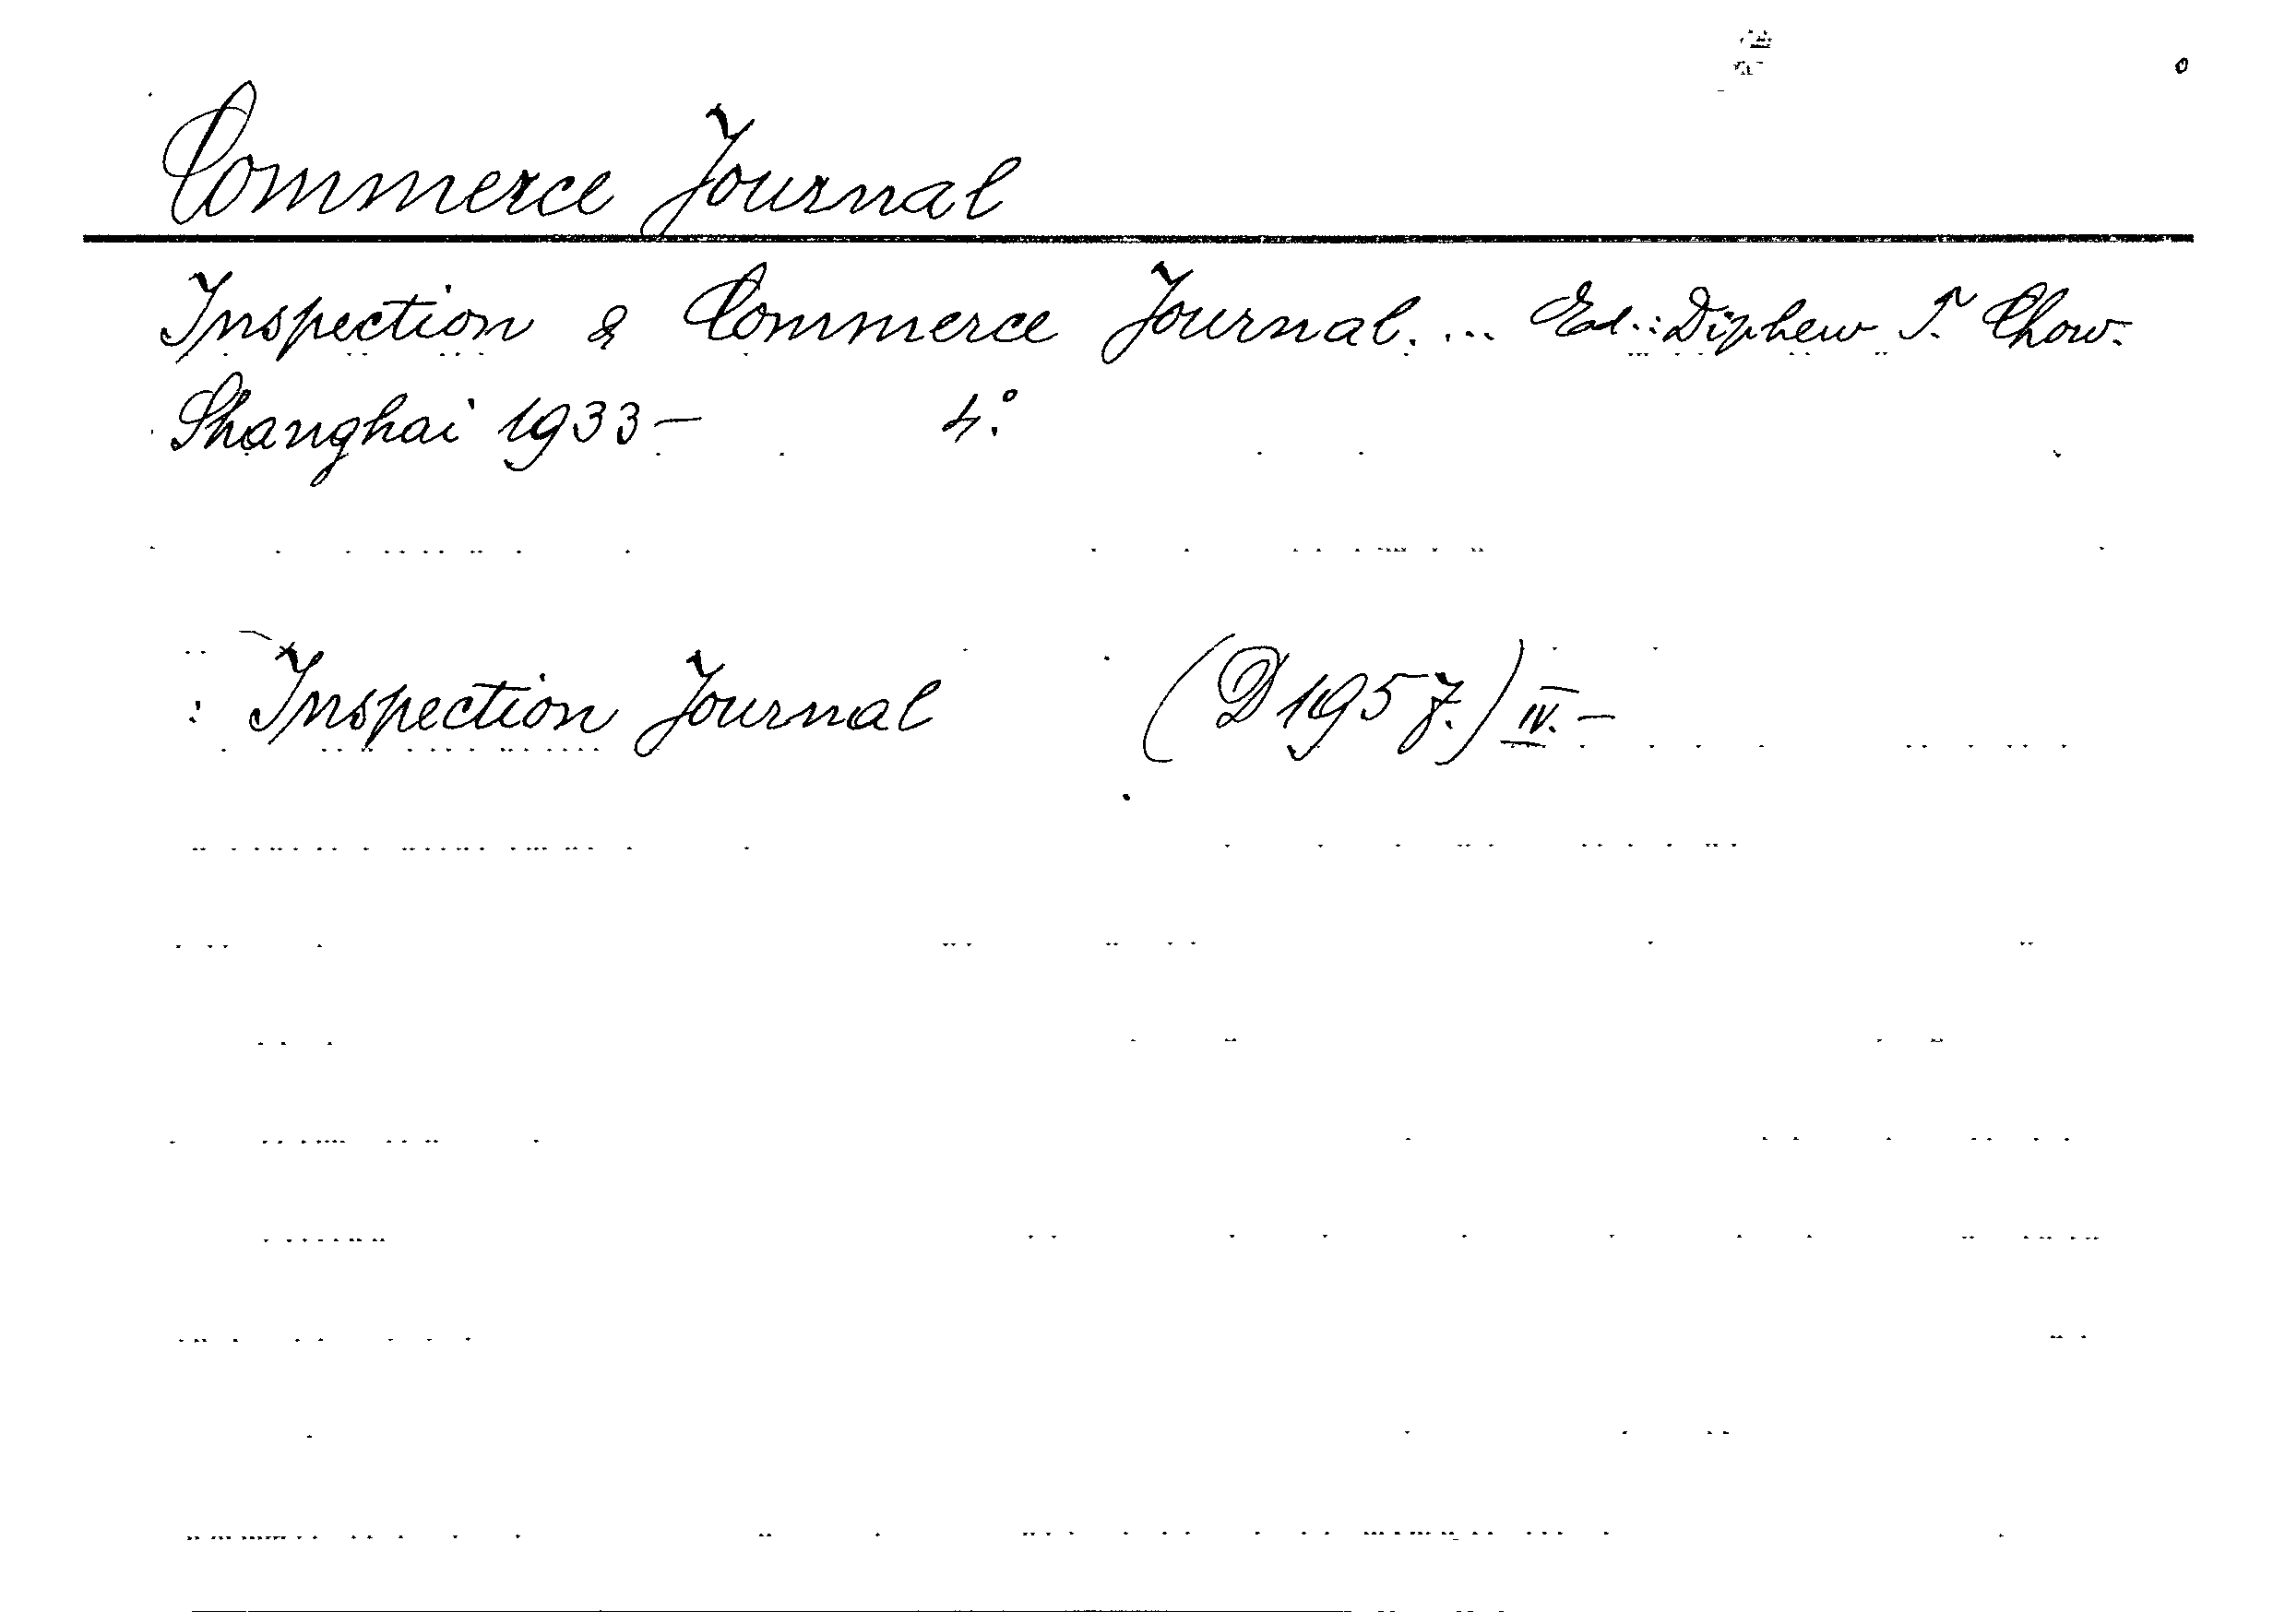 Commerce Journal
Inspection & Commerce Journal. ... Ed.: Diphew T. Chow.
Shanghai 1933- 4°.
: Inspection Journal (D 1957.) IV.-